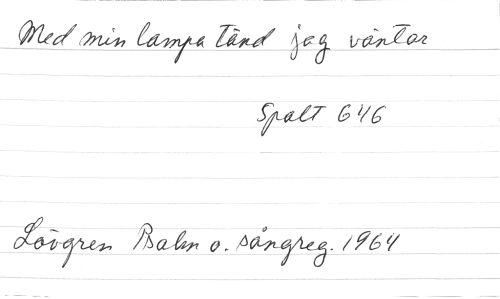 Med min lampa tänd jag väntar
Spalt 646
Lövgren Psalm o. sångreg. 1964